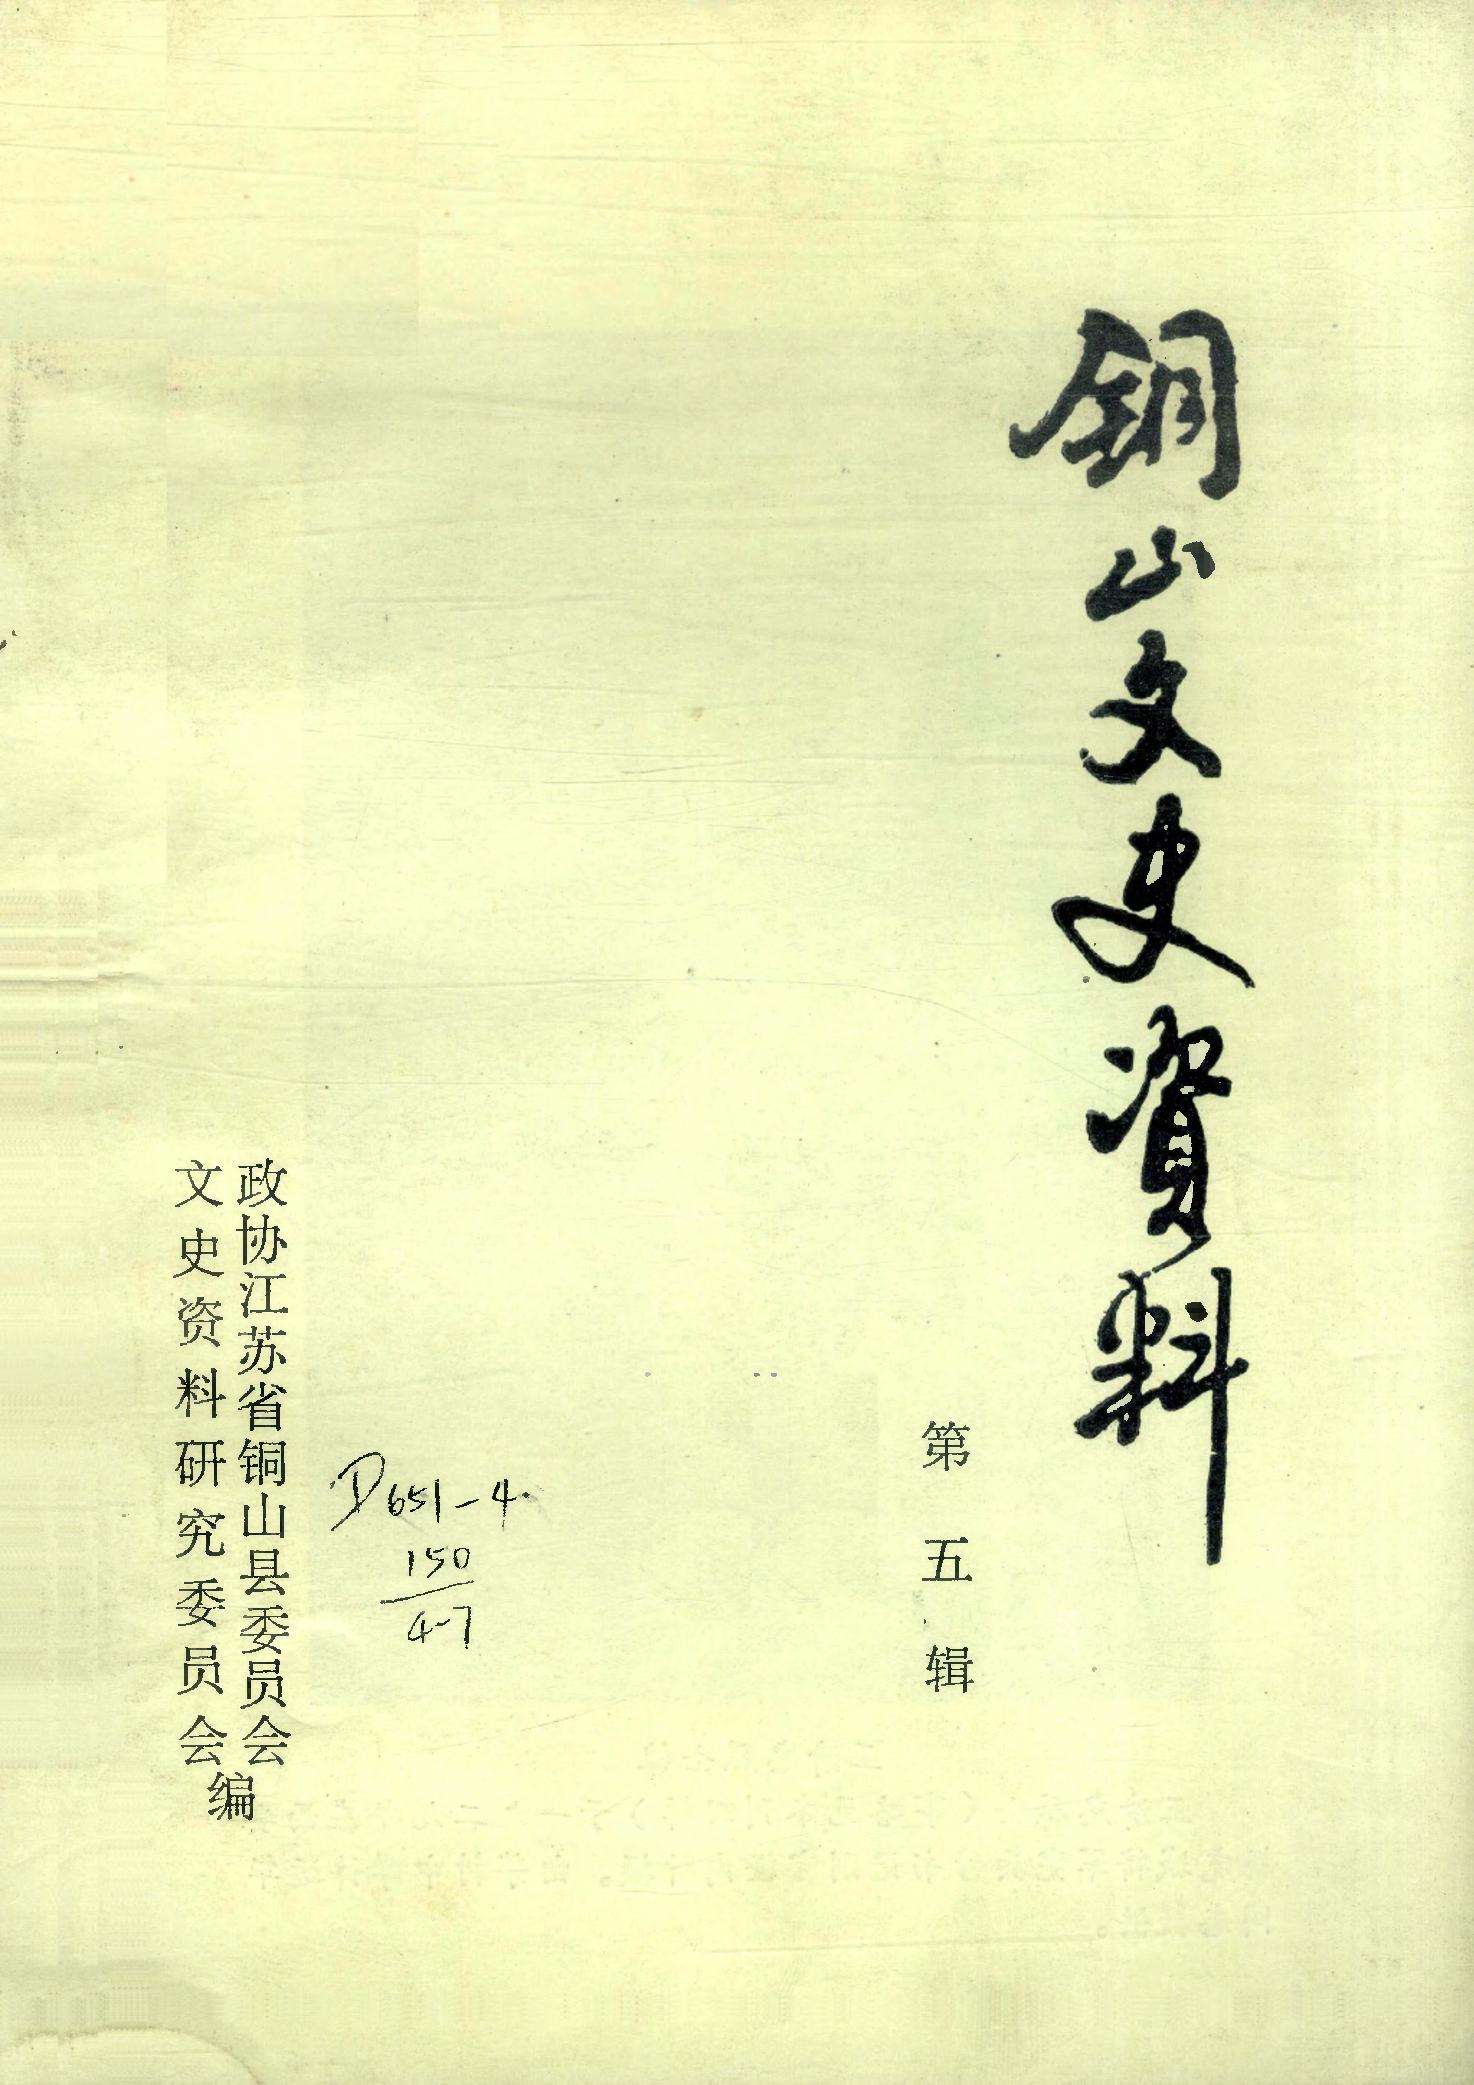 铜山文史資料
第五辑
政协江苏省铜山县委员会
文史资料研究委员会
编
D651-4
150
4-7